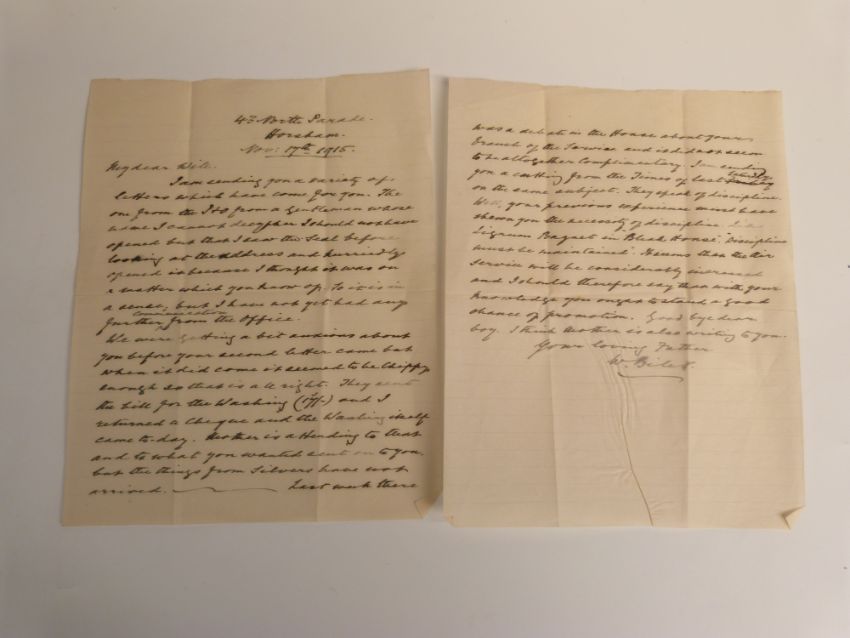 4 North Parade.
Horsham.
Nov: 17th 1915.
My dear Wile.
I am sending you a variety of
letters which have come for you. The
one from the is from a Gentleman whose
name I cannot decypher I should not have
opened but that I saw the Seal before
looking at the address and hurriedly
opened it because I thought it was on
a matter which you know of. So it is in
a sense, but I have not yet had any
further communication from the Office.
We were getting a bit anxious about
you before your second letter came but
when it did come it seemed to be chippy
enough so that is all right. They sent
the bill for the Washing and I
returned a cheque and the Washing itself
came to-day. Mother is attending to that
and to what you wanted sent on to you.
but the things from Silvers have not
arrived. Last week there
was a debate in the House about your
branch of the Service and it did not seem
to be altogether complimentary. I am sending
you a cutting from the Times of last Saturday
on the same subject. They speak of discipline.
Well, your previous experience must have
shewn you the necessity of discipline.
Bagnet in "Bleak House". "Discipline
must be maintained". It seems that the Air
Service will be considerably increased
and I should therefore say that with your
knowledge you ought to stand a good
chance of promotion. Good bye dear
boy. I think Mother is also writing to you.
Your loving Father
W. Biles.